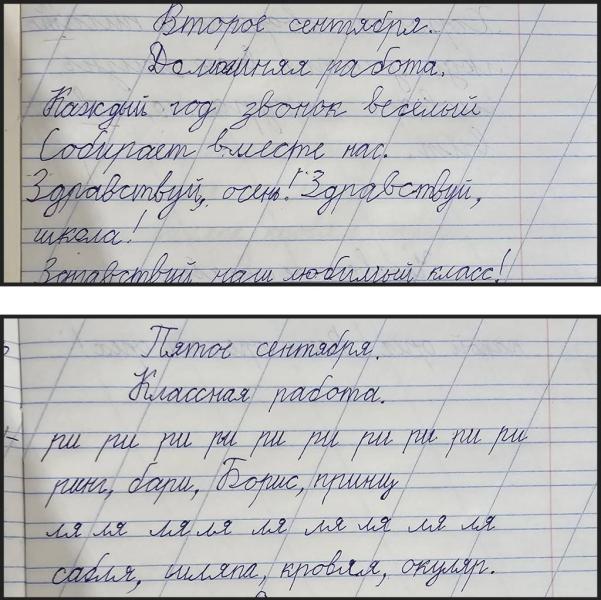 Второе сентября.
Домашняя работа.
Каждый год звонок весёлый
Собирает вместе нас.
Здравствуй, осень! Здравствуй,
школа!
Здравствуй наш любимый класс!
Пятое сентября.
Классная работа.
ри ри ри ри ри ри ри ри ри ри
ринг, бари, Борис, принц
ля ля ля ля ля ля ля ля ля
сабля, шляпа, кровля, окуляр.